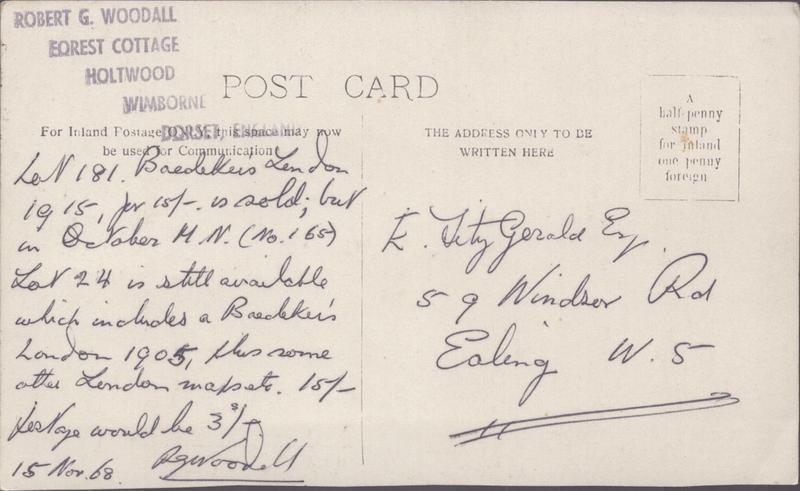 ROBERT G. WOODALL
FOREST COTTAGE
HOLTWOOD
WIMBORNE
DORSET, ENGLAND
POST CARD
For Inland Postage ONLY, this space may now
be used for Communication
THE ADDRESS ONLY TO BE
WRITTEN HERE
A
half-penny
stamp
for Inland
one penny
foreign
Lot 181. Baedeker's London
1915, for 15/- is sold; but
in October M.N. (No. 165)
Lot 24 is still available
which includes a Baedeker's
London 1905, plus some
other London maps etc. 15/-
Postage would be
15 Nov. 68. RGWoodall
E. FitzGerald Esq.
59 Windsor Rd
Ealing W. 5